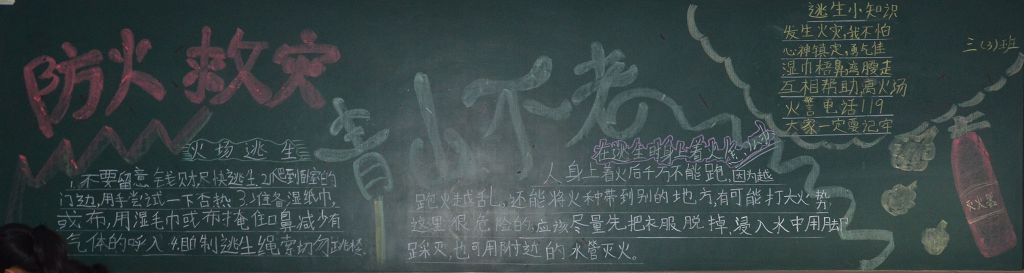 防火救灾
青山不老
火场逃生
1.不要留意钱财尽快逃生2)爬到卧室的
门边,用手尝试一下否热3)准备湿纸巾,
或布,用湿毛巾或布捂住口鼻减少有
气体的呼入4.自制逃生绳索切勿跳楼
在逃生时身上着火怎么办
人身上着火后千万不能跑,因为越
跑火越乱。还能将火种带到别的地方,有可能打大火势
这里很危险的,应该尽量先把衣服脱掉,浸入水中用脚
踩灭,也可用附近的水管灭火。
逃生小知识
发生火灾,我不怕
心神镇定,勇气佳
湿巾捂鼻,离腰走
互相帮助,离火场
火警电话119
大家一定要记牢
三(3)班
灭火器